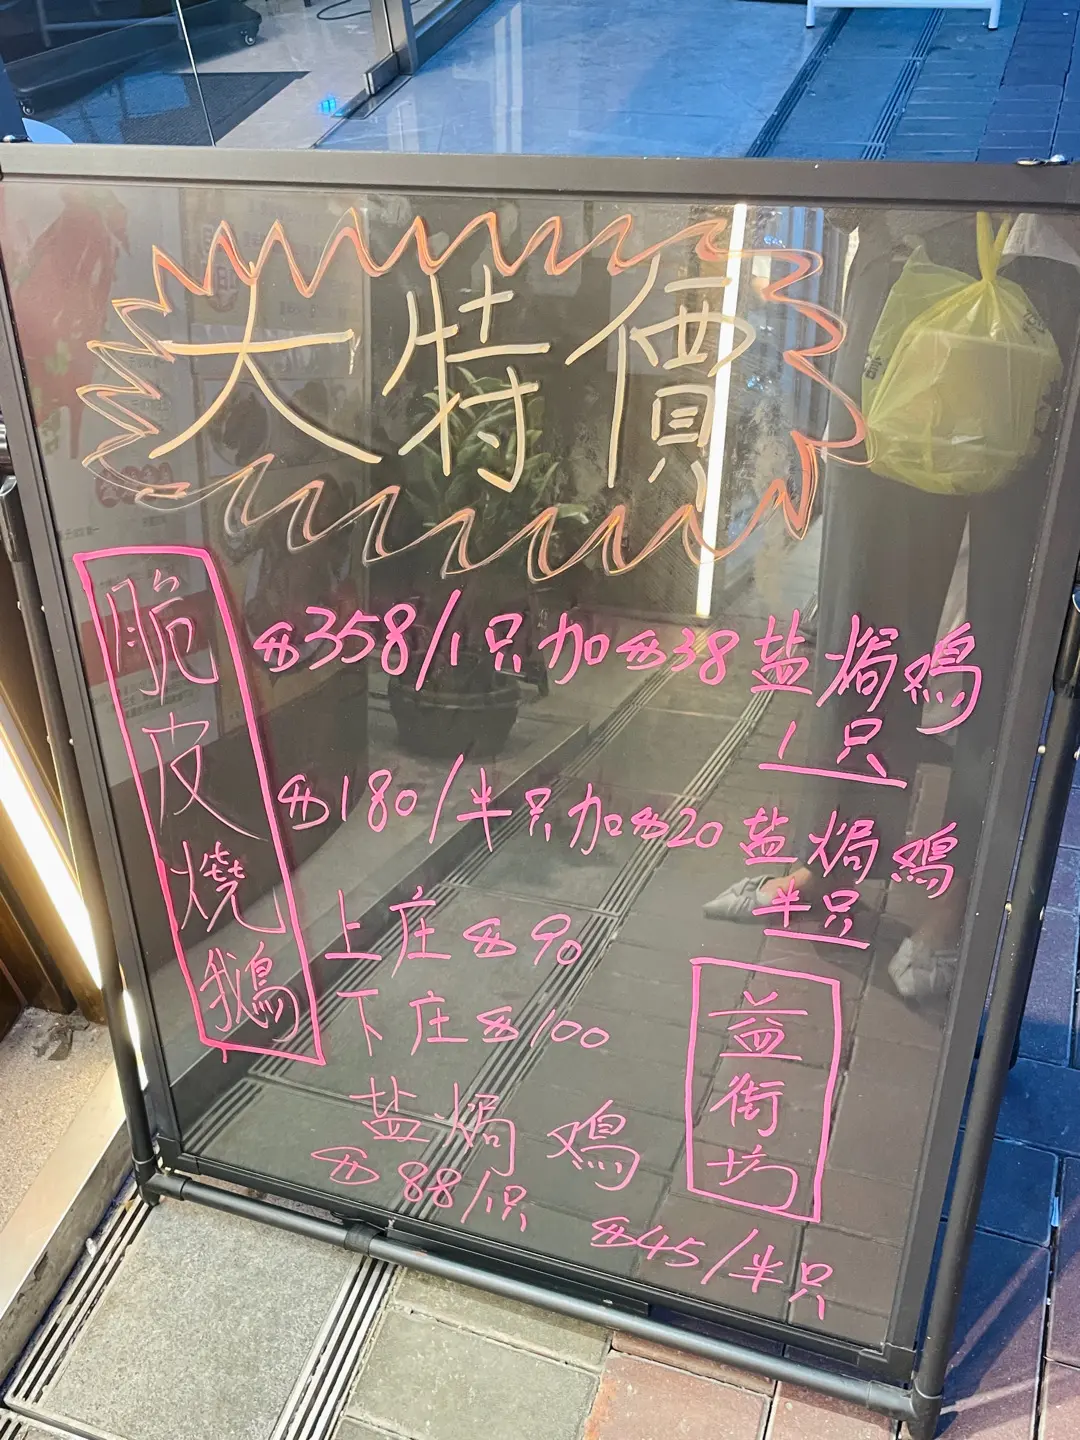 大特價
脆皮燒鵝
$358/1只加$38盐焗鸡
1只
$180/半只加$20盐焗鸡
半只
上庄$90
下庄$100
盐焗鸡
$88/只
$45/半只
益街坊